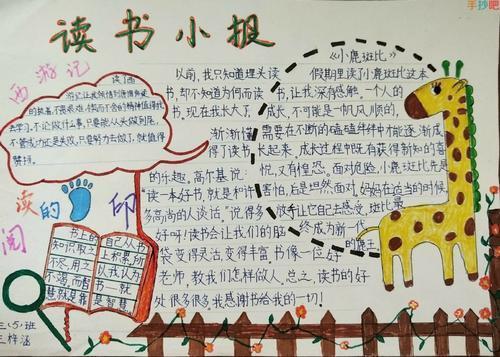 读书小报
手抄吧
西游记
读了西
游记让我领悟到唐僧师徒
的执着、不畏艰难、锲而不舍的精神值得我
去学习。不论做什么事,只要能从头做到尾,
不管成功还是失败,只要努力去做了,就值得
赞扬。
阅读的 印
书上的
知识取之
不尽,用之
不竭,而智
慧就是靠
自己人书
上积累,所
以我认为
书 就
是智慧
三、5班
王梓涵
以前,我只知道埋头读
书,却不知道为何而读
书,现在我长大了,
渐渐懂
得了读书
的乐趣。高尔基说:
“读一本好书,就是和许
多高尚的人谈话。”说得多
好呀!读书会让我们的脑
袋变得灵活,变得丰富,书像一位好
老师,教我们怎样做人。总之,读书的好
处很多很多,我感谢书给我的一切!
《小鹿斑比》
假期里读了小鹿斑比这本
书,让我深有感触,一个人的
成长,不可能是一帆风顺的,
需要在不断的磕磕绊绊中才能逐渐成
长起来,成长过程中既有获得新知的喜
悦,又有惶恐。面对危险,小鹿斑比先是
害怕,后是坦然面对,妈妈在适当的时候
放手让它自己去感受,斑比最
终成为新一代
的鹿王